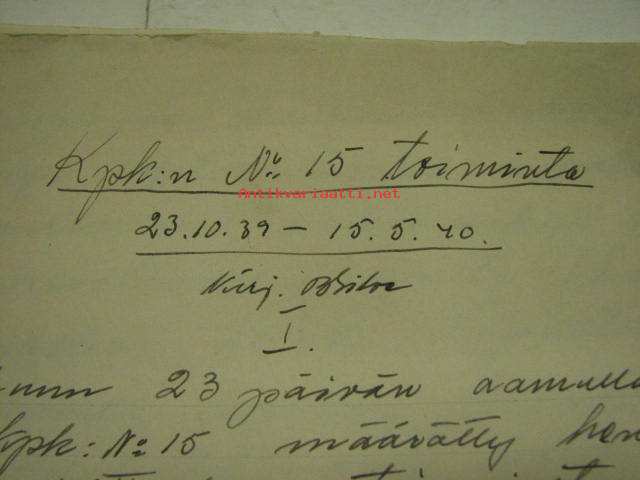 Kpk:n No 15 toiminta
Antikvariaatti.net
23.10.39 – 15.5.40.
Kirj.
I.
23 päivän aamulla
Kpk: No 15 määrätty